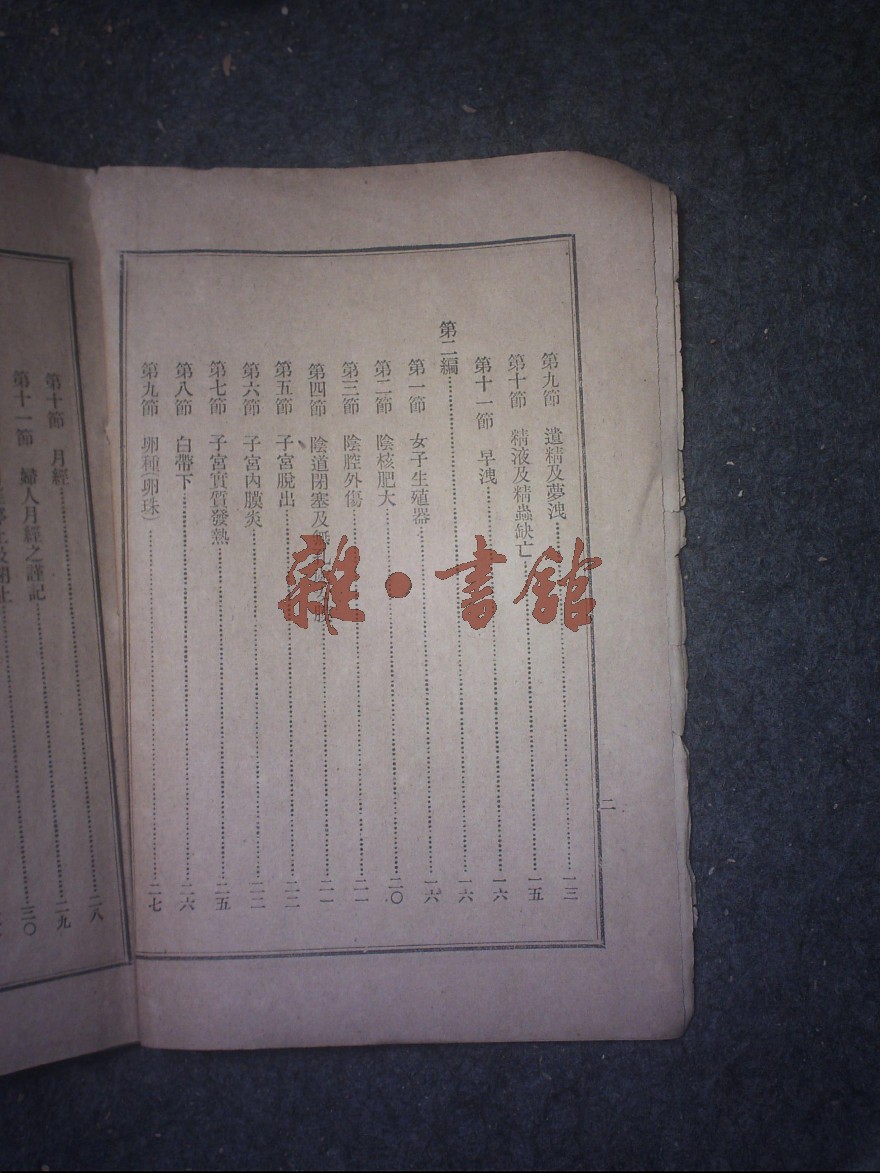 第九節 遺精及夢洩 一三
第十節 精液及精蟲缺亡 一五
第十一節 早洩 一六
第二編 一六
第一節 女子生殖器 一六
第二節 陰核肥大 二〇
第三節 陰腔外傷 二一
第四節 陰道閉塞及無 二一
第五節 子宮脫出 二二
第六節 子宮內膜炎 二二
第七節 子宮實質發熱 二五
第八節 白帶下 二六
第九節 卵種(卵珠) 二七
二
雜·書館
二八
第十節 月經 二九
第十一節 婦人月經之謹記 三〇